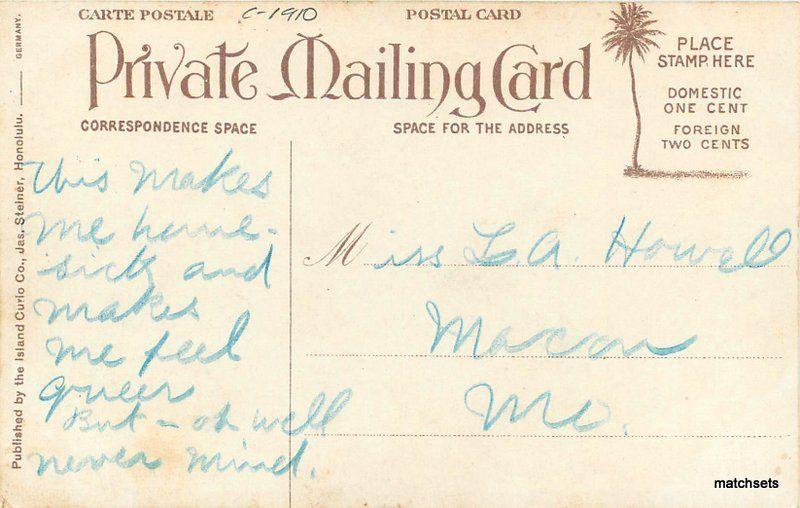 CARTE POSTALE
c-1910
POSTAL CARD
Private Mailing Card
CORRESPONDENCE SPACE
SPACE FOR THE ADDRESS
PLACE
STAMP HERE
DOMESTIC
ONE CENT
FOREIGN
TWO CENTS
Published by the Island Curio Co., Jas. Steiner, Honolulu. GERMANY.
This makes
me home-
sick and
makes
me feel
queer
But - oh well
never mind.
Miss L. A. Howell
Macon
Mo.
matchsets